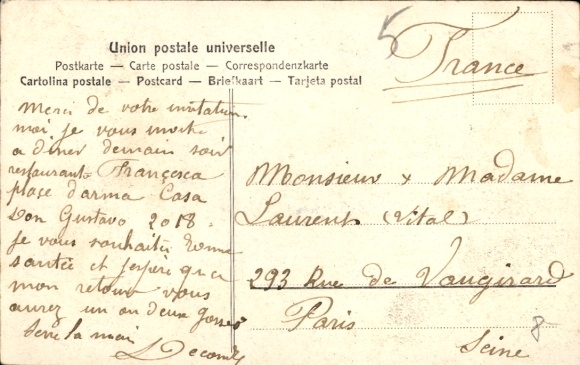 Union postale universelle
Postkarte — Carte postale — Correspondenzkarte
Cartolina postale — Postcard — Briefkaart — Tarjeta postal
France
Merci de votre invitation.
moi je vous invite
a diner demain soir
restaurant Françesca
place d'arma Casa
Don Gustavo 2018.
Je vous souhaite bonne
santée et j'espère qu'a
mon retour vous
aurez un ou deux gosses
Serre la main
Monsieur & Madame
Laurent (Vital)
293 Rue de Vaugirard
Paris
Seine
8